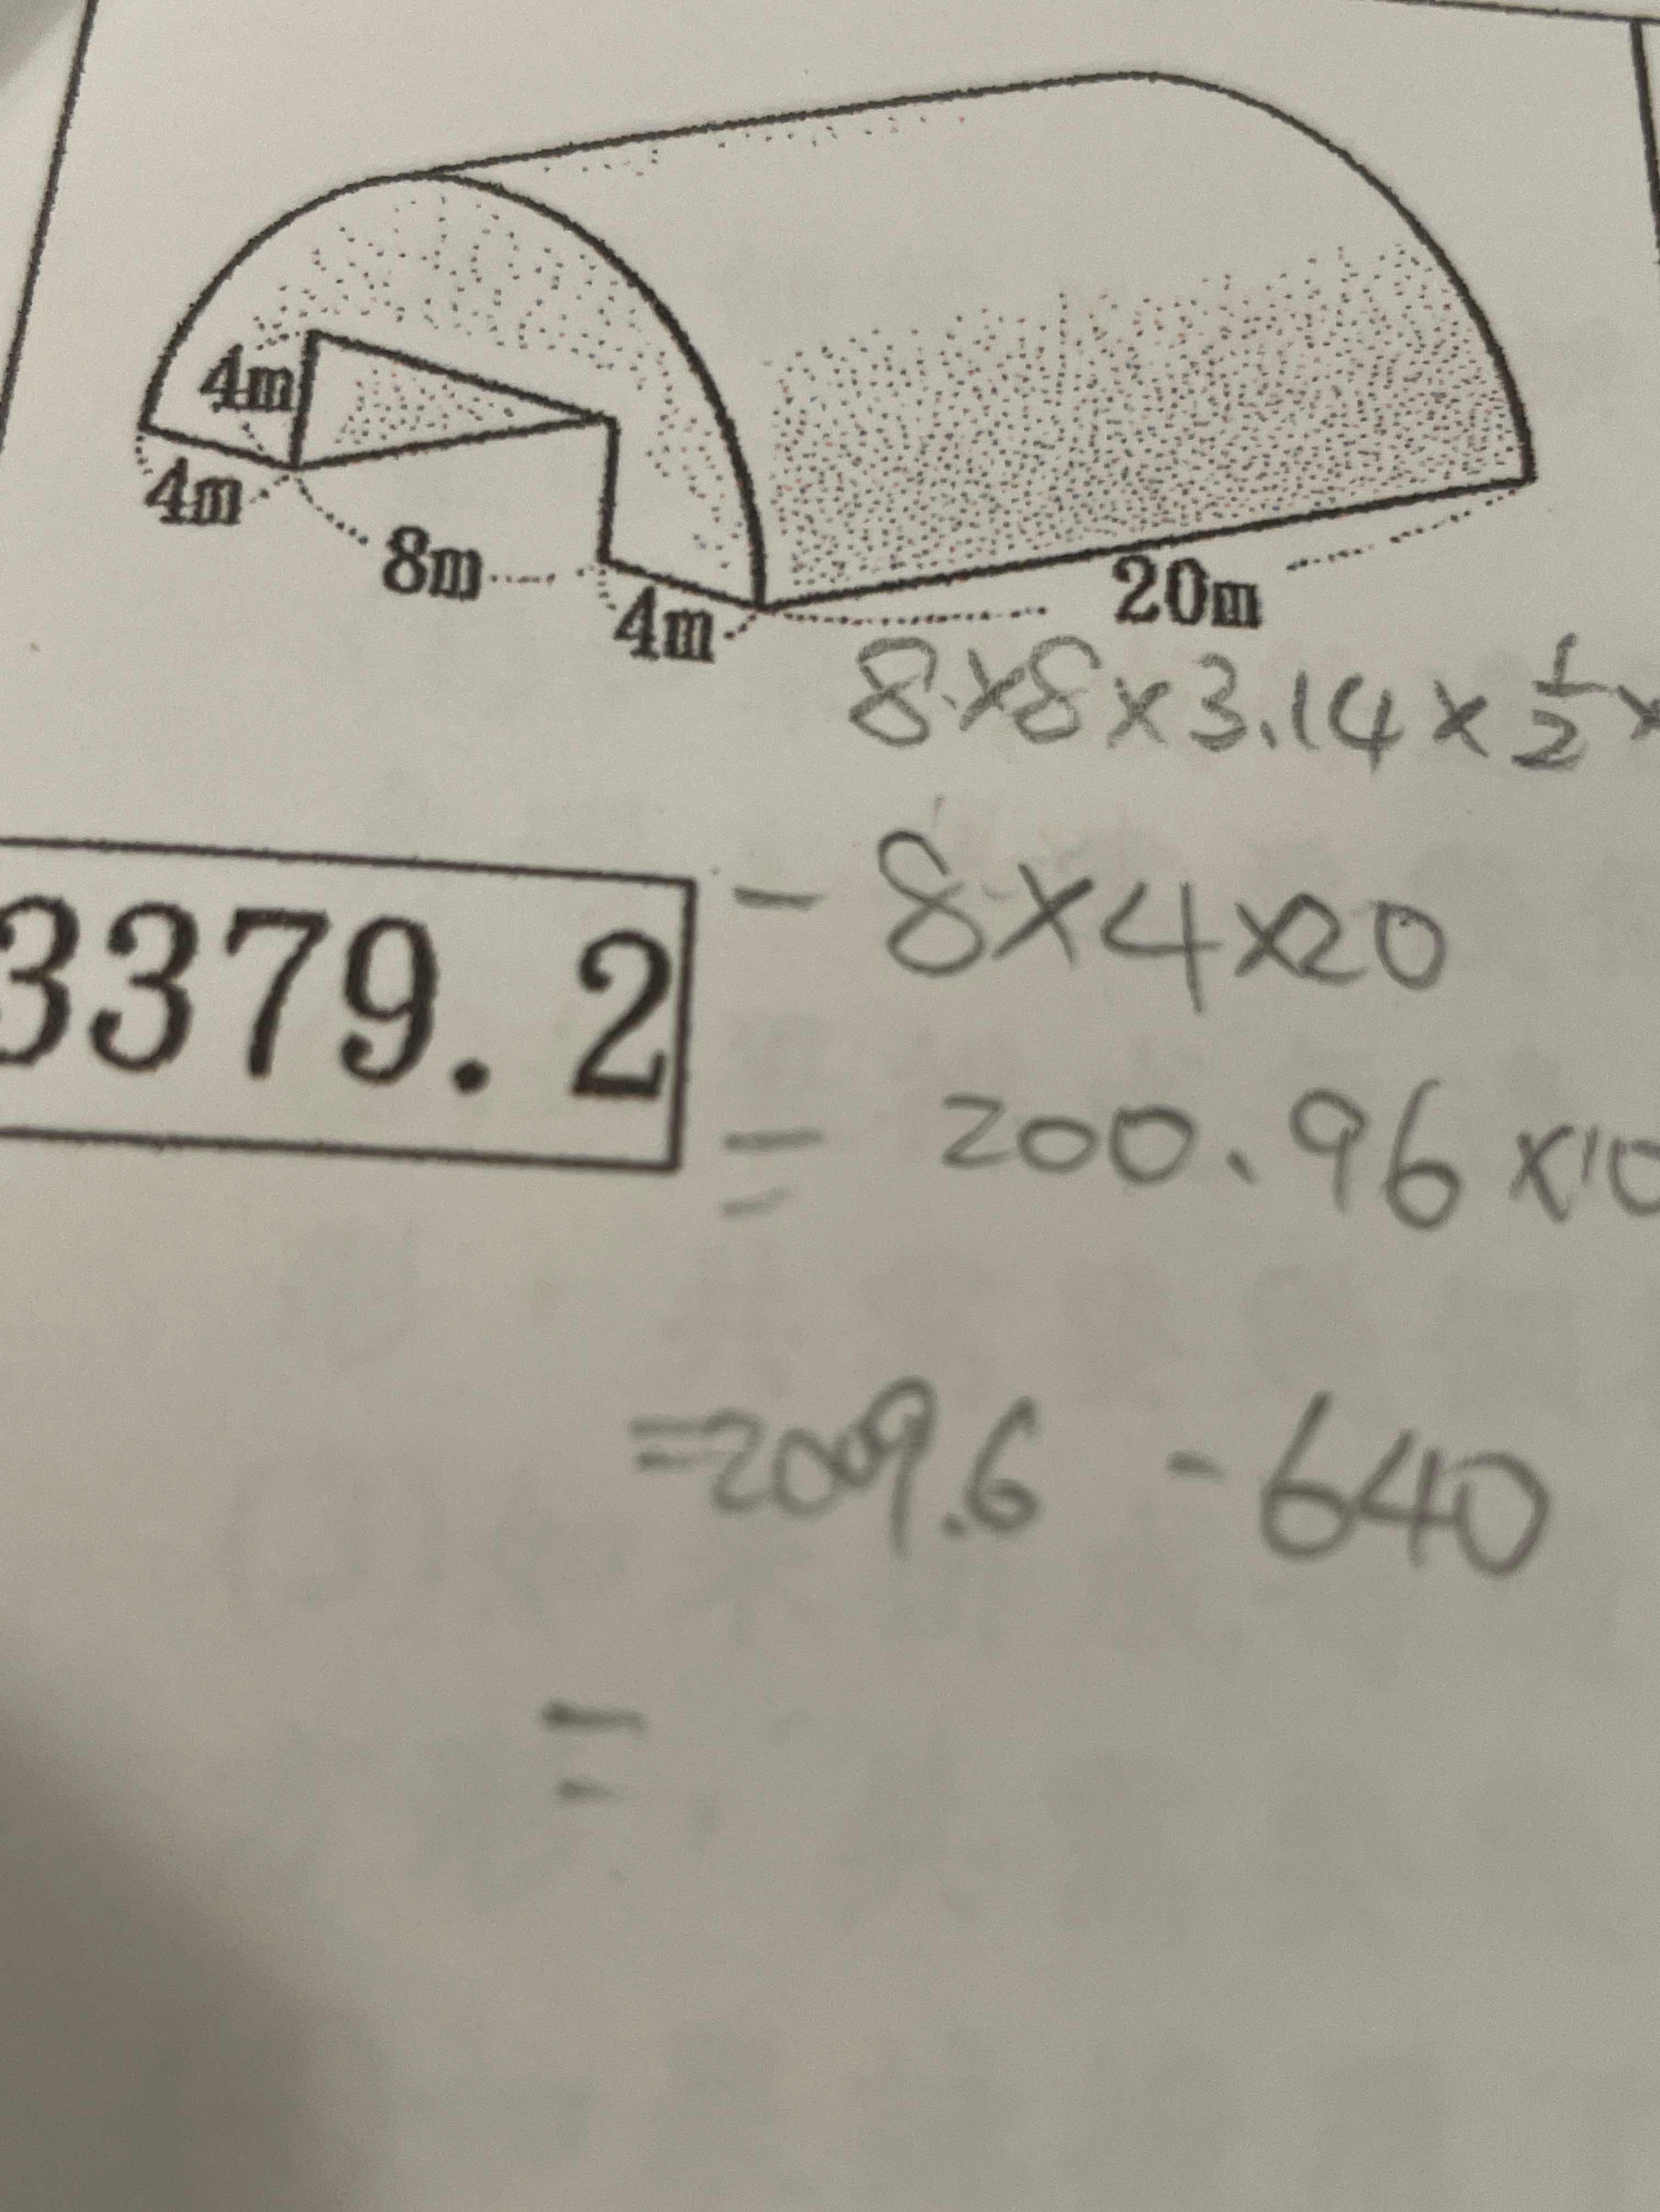 4m
4m
8m
4m
20m
8×8×3.14×1/2×
3379.2
- 8×4×20
= 200.96×10
=2009.6 - 640
=